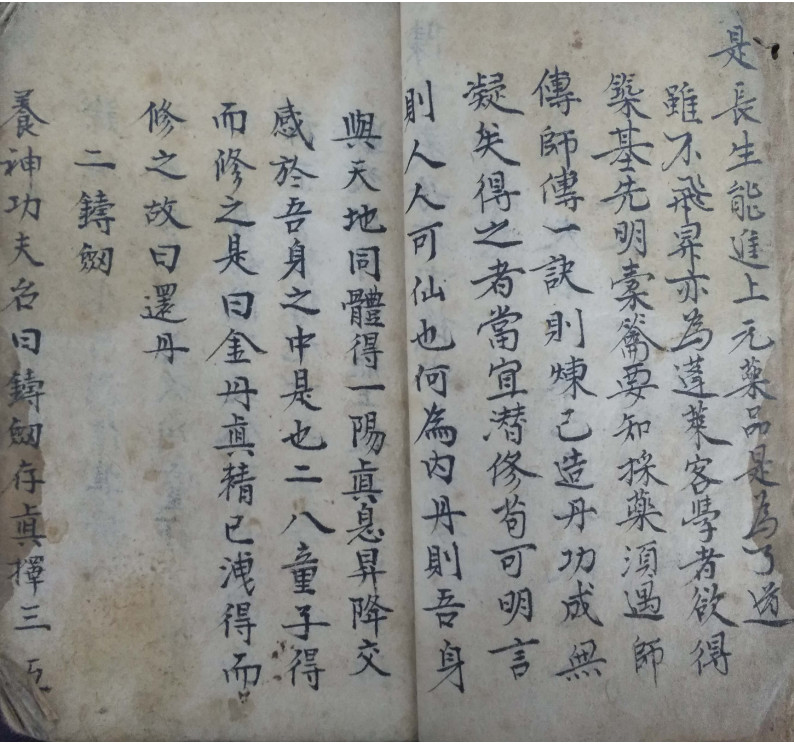 是長生能進上元藥品是為了道
雖不飛昇亦為蓬萊客學者欲得
築基先明橐籥要知採藥須遇師
傳師傳一訣則煉己造丹功成無
凝矣得之者當宜潜修苟可明言
則人人可仙也何為内丹則吾身
與天地同體得一陽眞息昇降交
感於吾身之中是也二八童子得
而修之是曰金丹眞精已洩得而
修之故曰還丹
二鑄劒
養神功夫名曰鑄劒存眞擇三